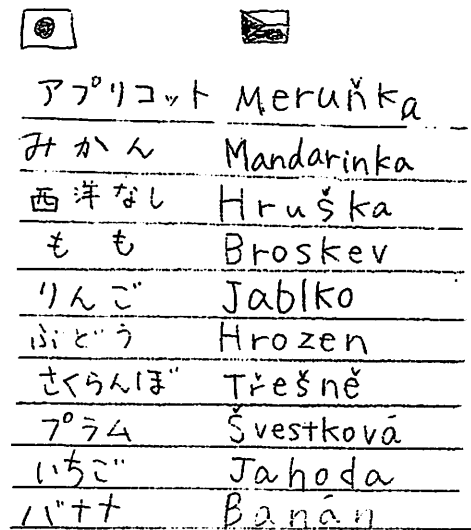 アプリコット Meruňka
みかん Mandarinka
西洋なし Hruška
もも Broskev
りんご Jablko
ぶどう Hrozen
さくらんぼ Třešně
プラム Švestková
いちご Jahoda
バナナ Banán